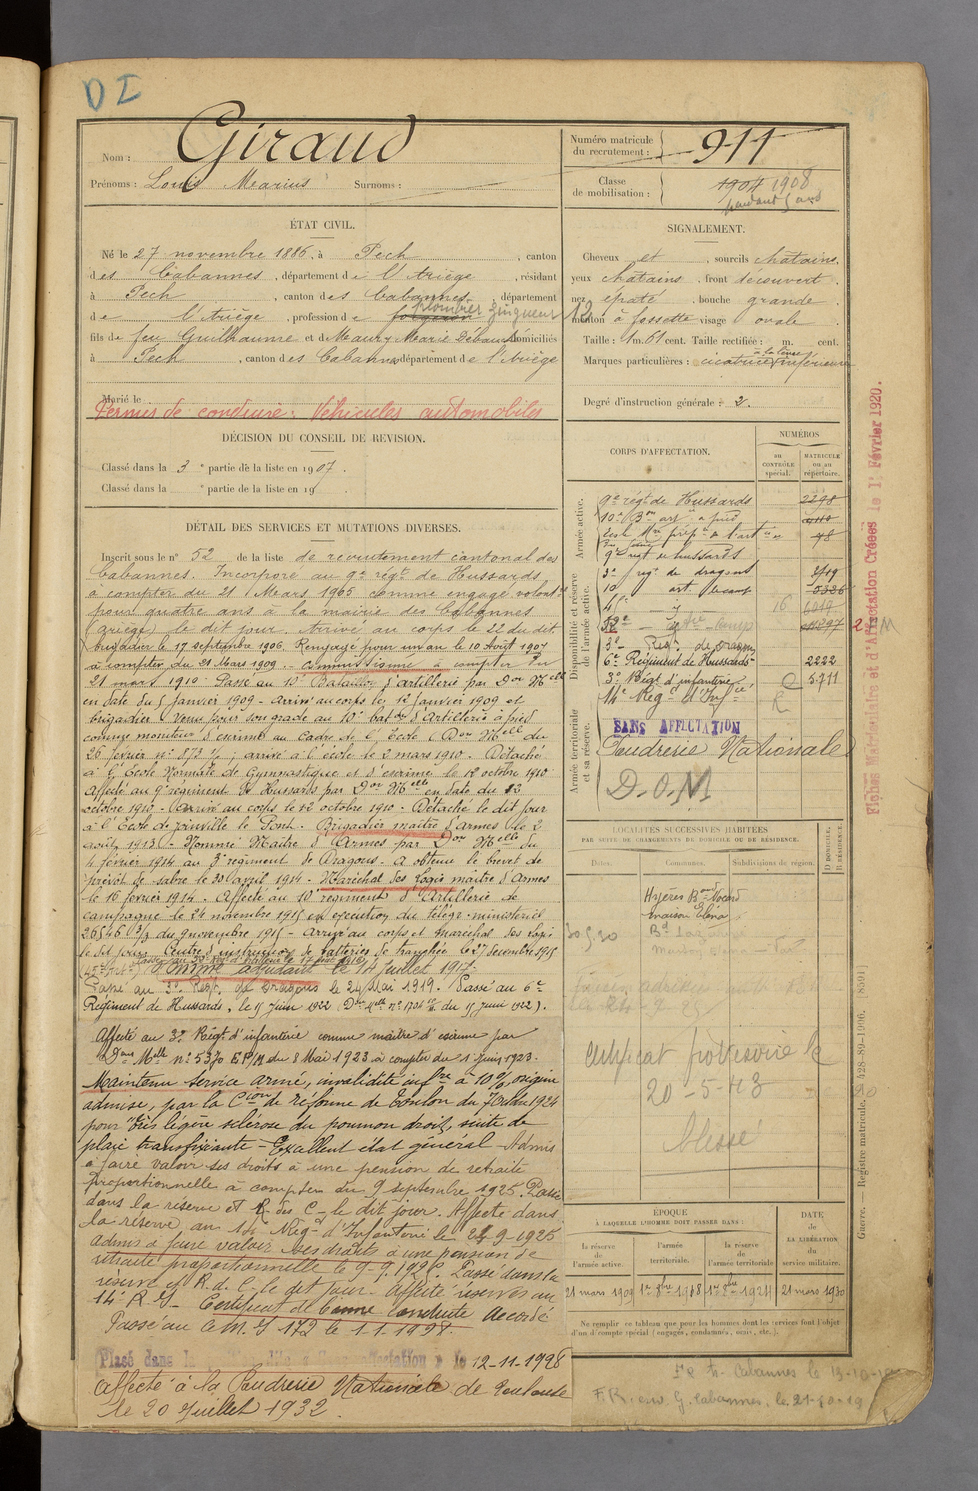 D I
Nom : Giraud
Prénoms : Louis Marius Surnoms :
Numéro matricule du recrutement : 911
Classe de mobilisation : 1904 1908
pendant 5 ans
ÉTAT CIVIL.
Né le 27 novembre 1886, à Pech, canton
des Cabannes, département de l'Ariège, résidant
à Pech, canton des Cabannes, département
de l'Ariège, profession de forgeron plombier zingueur 12
fils de feu Guilhaume et de Maury Marie domiciliés
à Pech, canton des Cabannes département de l'Ariège
Marié le
Permis de conduire : Véhicules automobiles
DÉCISION DU CONSEIL DE REVISION.
Classé dans la 3e partie de la liste en 1907.
Classé dans la e partie de la liste en 19
DÉTAIL DES SERVICES ET MUTATIONS DIVERSES.
Inscrit sous le n° 52 de la liste de recrutement cantonal des
Cabannes. Incorporé au 9e régt de Hussards
à compter du 21 Mars 1905 comme engagé volontre
pour quatre ans à la mairie des Cabannes
(Ariège) le dit jour. Arrivé au corps le 22 du dit.
brigadier le 17 septembre 1906. Rengagé pour un an le 10 Août 1907
à compter du 21 Mars 1909. Commissionné à compter du
21 mars 1910. Passé au 10e Bataillon d'artillerie par Don Mlle
en date du 5 Janvier 1909 - Arrivé au corps le 12 janvier 1909 et
brigadier. Venu pour son grade au 10e baton d'Artillerie à pied
comme moniteur d'escrime au Cadre de l'École (Don Mlle du
26 février n° 873 1/1, arrivé à l'école le 2 mars 1910. Détaché
à l'École Normale de Gymnastique et d'escrime le 12 octobre 1910
Affecté au 9e régiment de Hussards par Don Mlle en date du 12
octobre 1910. Arrivé au corps le 12 octobre 1910 - Détaché le dit jour
à l'École de Joinville le Pont. Brigadier maître d'armes le 2
août 1913. Nommé Maître d'Armes par Don Mlle du
4 février 1914 au 3e régiment de Dragons. A obtenu le brevet de
prévôt de sabre le 20 avril 1914. Maréchal des Logis maître d'Armes
le 16 février 1914. Affecté au 10e régiment d'Artillerie de
campagne le 24 novembre 1915 en exécution du télégr. ministériel
26546 3/3 du 9 novembre 1915 - Arrivé au corps et maréchal des logis
le dit jour. Centre d'instruction de batteries de tranchée le 27 décembre 1915
Nommé adjudant le 14 juillet 1917.
Passé au 3e Regt de Dragons le 24 Mai 1919. Passé au 6e
Régiment de Hussards, le 15 Juin 1922
Affecté au 3e Régt d'infanterie comme maître d'escrime par
Dons Mlle n° 5370 du 8 Mai 1923 à compter du 1er Juin 1923.
Maintenu service armé, invalidité infre à 10 %, origine
admise, par la Cion de réforme de Toulon du 7 Octobre 1924
pour très légère sclérose du poumon droit, suite de
plaie transfixiante - Excellent état général - Admis
à faire valoir ses droits à une pension de retraite
proportionnelle à compter du 9 septembre 1925. Passé
dans la réserve et R des C le dit jour. Affecté dans
la réserve au 14e Régt d'Infanterie le 24-9-1925
Admis à faire valoir ses droits à une pension de
retraite proportionnelle le 9.9.1925. Passé dans la
réserve et R. d. C. le dit jour. Affecté réserves au
14e R I - Certificat de bonne conduite accordé
Passé au C.M. I 172 le 1.1.1928.
Placé dans la ... affectation le 12-11-1928
Affecté à la Poudrerie Nationale de Toulouse
le 20 Juillet 1932.
SIGNALEMENT.
Cheveux et, sourcils châtains.
yeux châtains, front découvert.
nez épaté, bouche grande.
menton à fossette visage ovale
Taille : 1 m. 61 cent. Taille rectifiée : m. cent.
Marques particulières : cicatrice à la lèvre inférieure
Degré d'instruction générale : 2.
CORPS D'AFFECTATION.
NUMÉROS
au CONTRÔLE spécial.
MATRICULE ou au répertoire.
Armée active.
9e régt de Hussards 2298
10e Bon art à pied
78
9e regt de hussards
Disponibilité et réserve de l'armée active.
3e regt de dragons 3719
10 art camp 5326
16 6019
3e Regt de dragons
6e Régiment de Hussards 2222
3e Régt d'infanterie C 5711
14e Régt d'Infrie R
Armée territoriale et sa réserve.
SANS AFFECTATION
Poudrerie Nationale
D.O.M
LOCALITÉS SUCCESSIVES HABITÉES
PAR SUITE DE CHANGEMENTS DE DOMICILE OU DE RÉSIDENCE.
Dates. Communes. Subdivisions de région. D DOMICILE. R RÉSIDENCE.
Hyères
maison Elena
30.5.30
Certificat provisoire le
20-5-43
blessé
ÉPOQUE
À LAQUELLE L'HOMME DOIT PASSER DANS :
DATE de LA LIBÉRATION du service militaire.
la réserve de l'armée active.
l'armée territoriale.
la réserve de l'armée territoriale.
21 mars 1909 1er 8bre 1918 1er 8bre 1924 21 mars 1930
Ne remplir ce tableau que pour les hommes dont les services font l'objet
d'un décompte spécial (engagés, condamnés, omis, etc.).
F.R. env. G. Cabannes, le 21-10-19
Fiches Matriculaire et d'Affectation Créées le 1 Février 1920.
Guerre. — Registre matricule. — 428-89-1906. [8591]